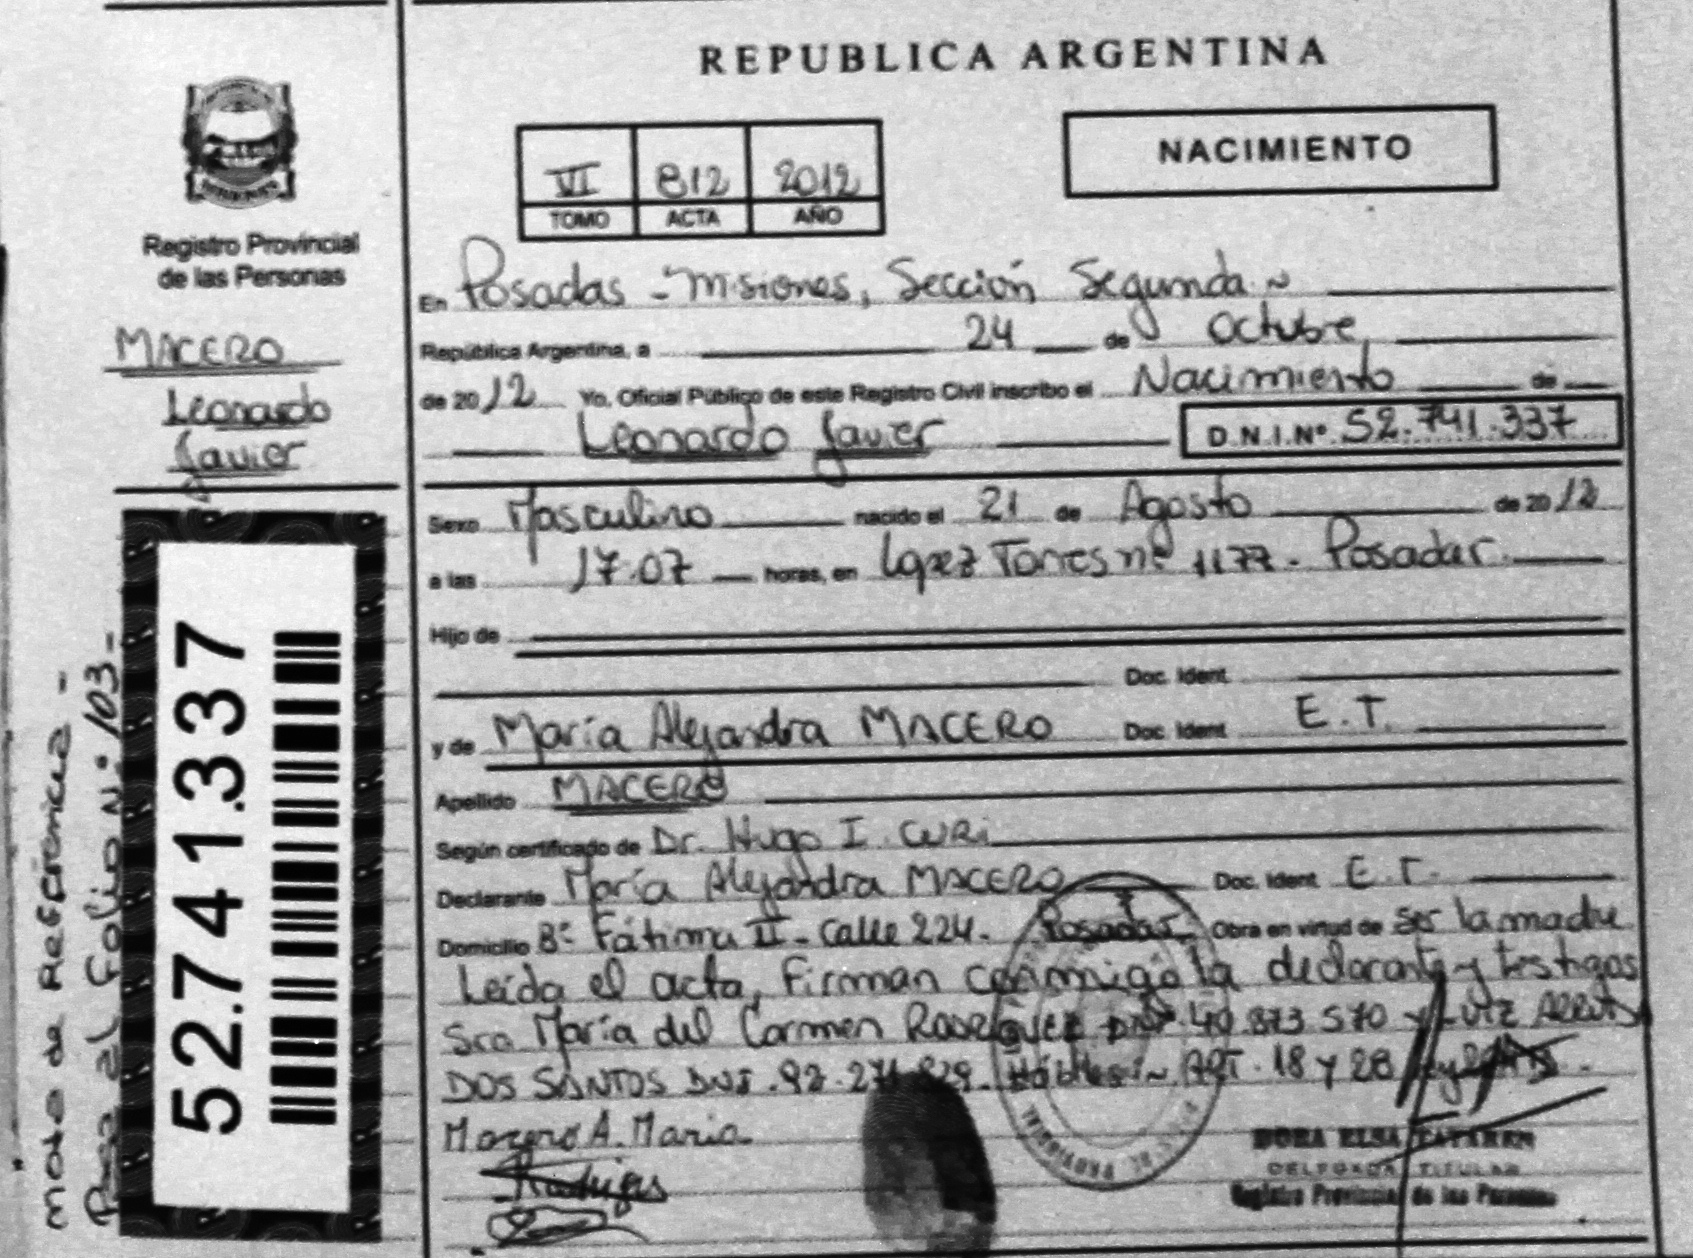 REPUBLICA ARGENTINA
NACIMIENTO
VI 812 2012
TOMO ACTA AÑO
Registro Provincial
de las Personas
MACERO
Leonardo
Javier
En Posadas - Misiones, Sección Segunda
República Argentina, a 24 de Octubre
de 2012 Yo, Oficial Público de este Registro Civil inscribo el Nacimiento de
Leonardo Javier D.N.I.Nº 52.741.337
Sexo Masculino nacido el 21 de Agosto de 2012
a las 17.07 horas, en López Torres nº 1177 - Posadas.
Hijo de
Doc. Ident
y de María Alejandra MACERO Doc. Ident E.T.
Apellido MACERO
Según certificado de Dr. Hugo I. CURI
Declarante María Alejandra MACERO Doc. Ident E.T.
Domicilio Bº Fátima II - Calle 224 - Posadas Obra en virtud de ser la madre
Leída el acta, firman conmigo la declarante y testigos
Sra María del Carmen RODRIGUEZ DNI 40.873 570 y LUIZ
DOS SANTOS DNI .92. Hábiles ART. 18 y 28
Macero A. Maria
DORA ELSA
DELEGADA TITULAR
Registro Provincial de las Personas
52.741.337
Nota de Referencia -
Pasa al Folio Nº 103 -